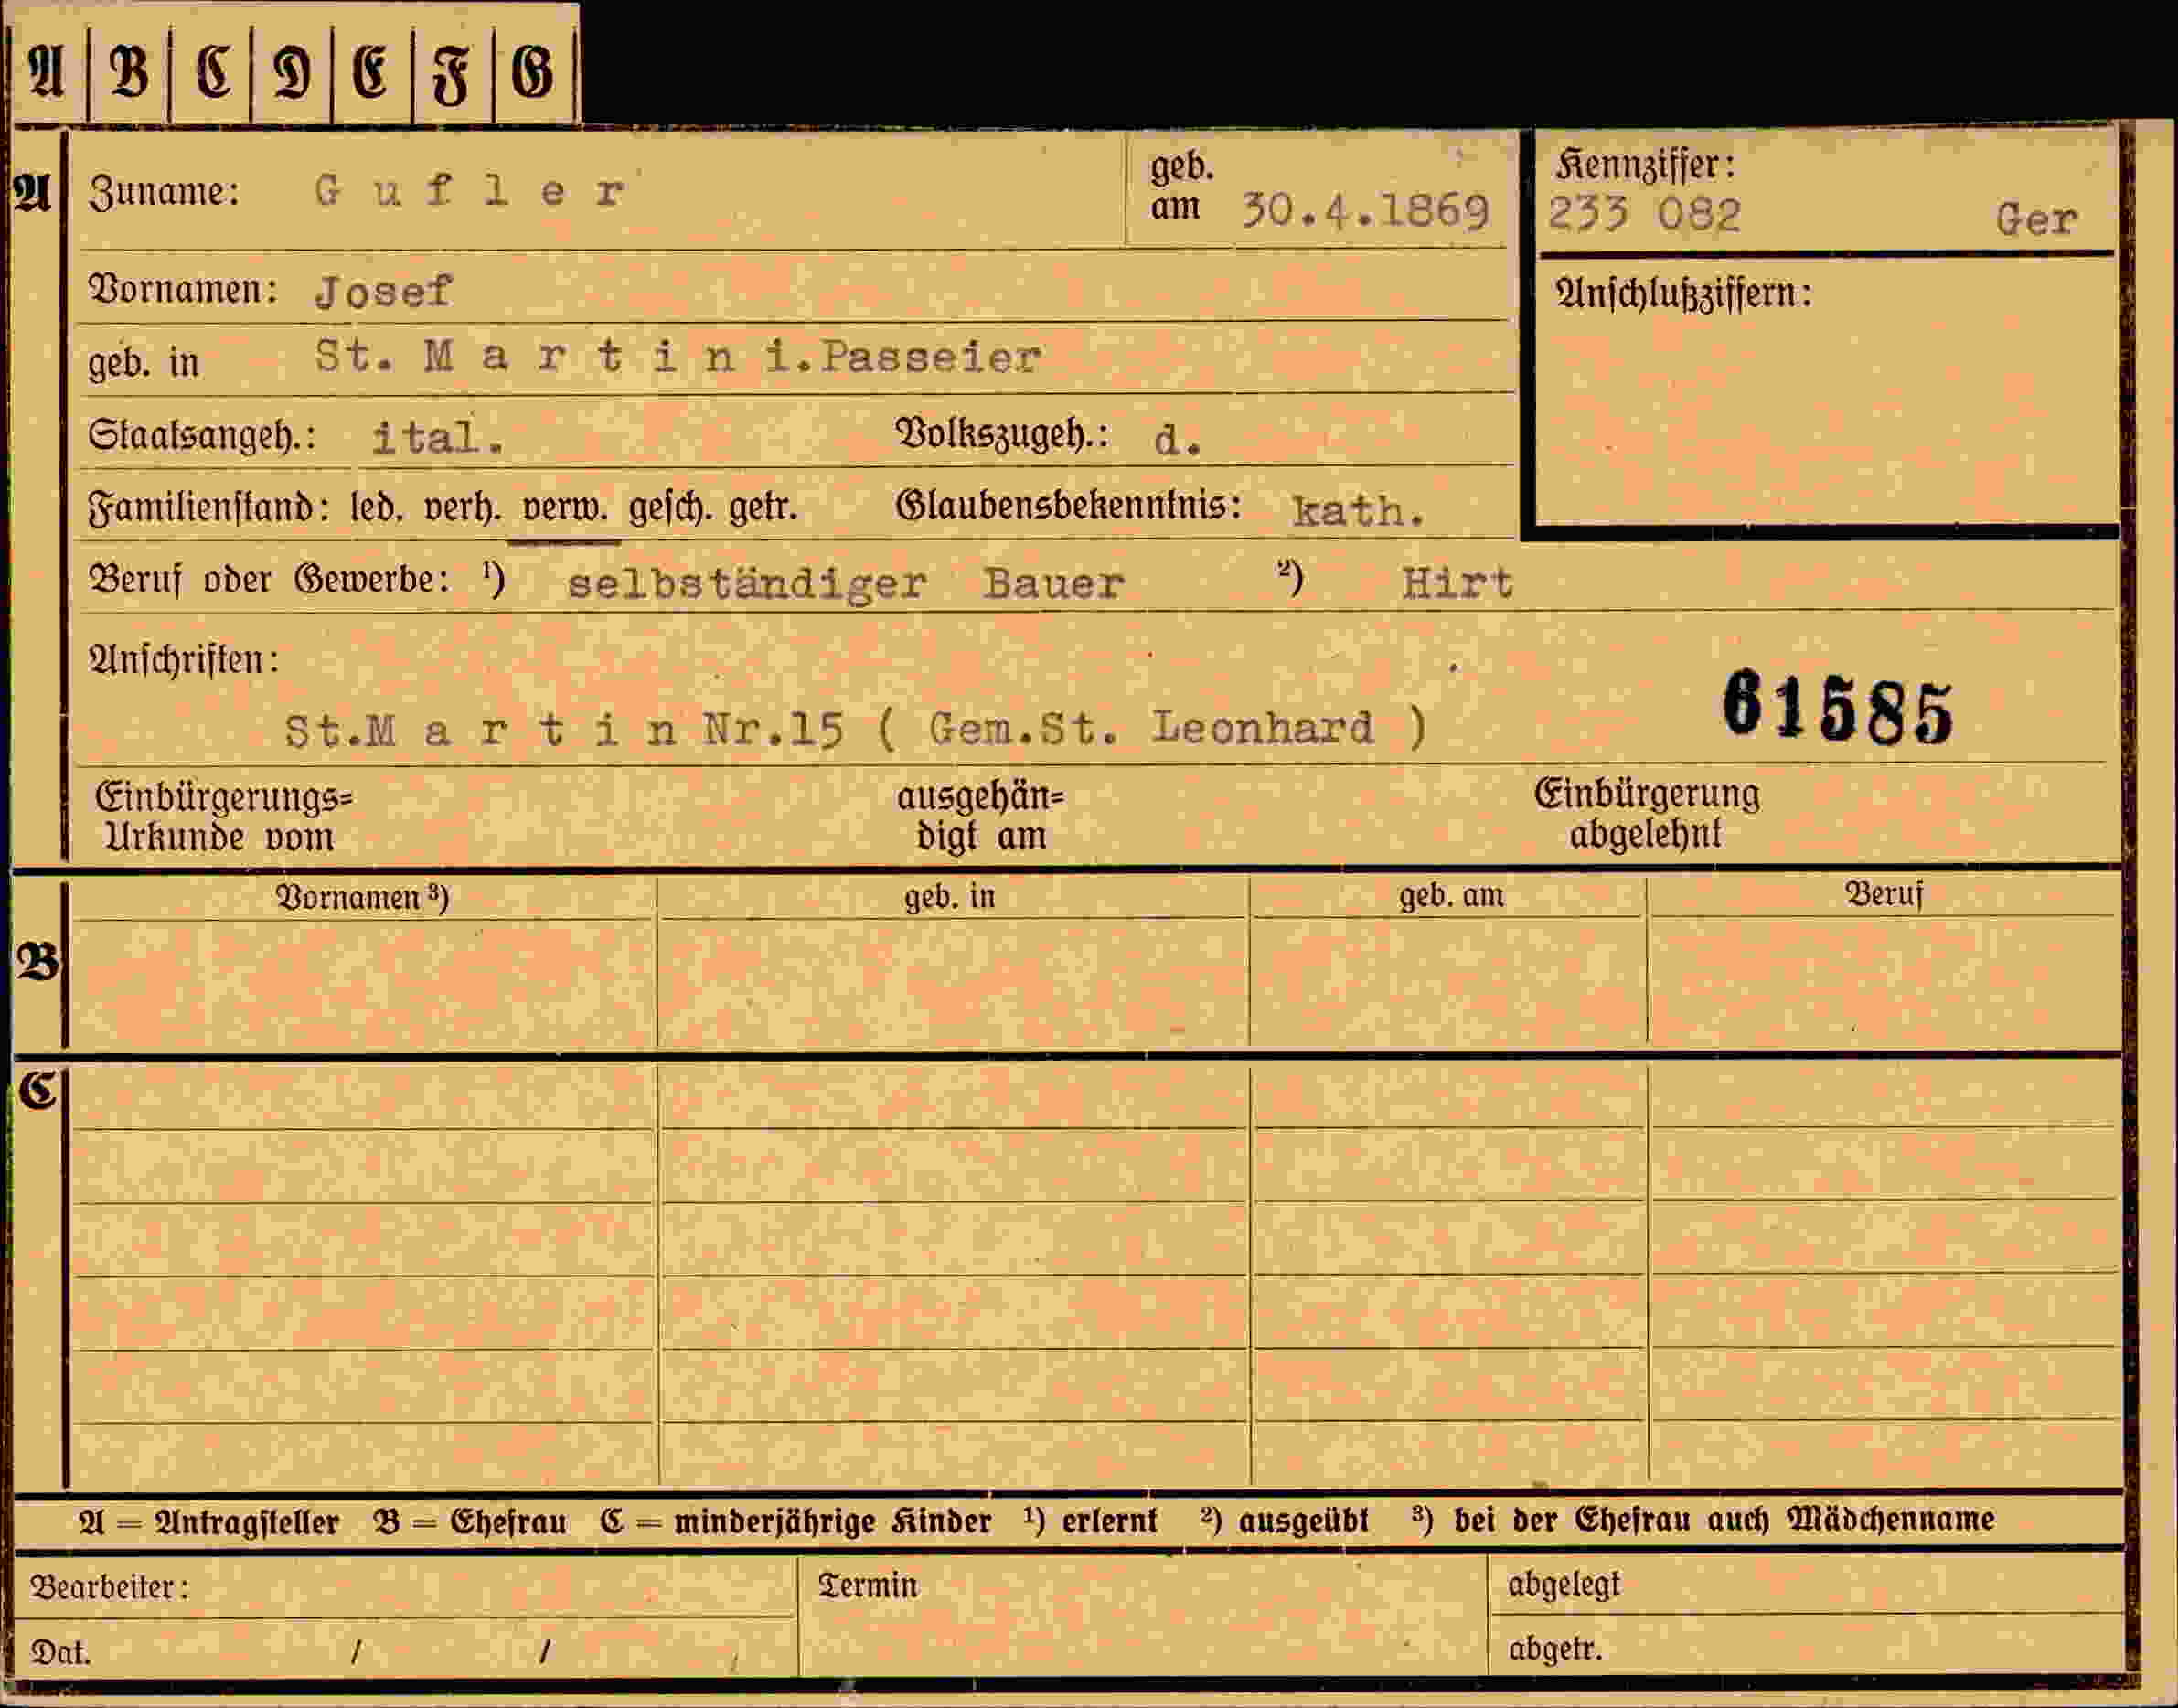 A B C D E F G
A Zuname: Gufler geb. am 30.4.1869 Kennziffer: 233 082 Ger
Vornamen: Josef Anschlußziffern:
geb. in St. Martin i.Passeier
Staatsangeh.: ital. Volkszugeh.: d.
Familienstand: led. verh. verw. gesch. getr. Glaubensbekenntnis: kath.
Beruf oder Gewerbe: ¹) selbständiger Bauer ²) Hirt
Anschriften:
61585
St.Martin Nr.15 ( Gem.St. Leonhard )
Einbürgerungs= ausgehän= Einbürgerung
Urkunde vom digt am abgelehnt
Vornamen ³) geb. in geb. am Beruf
B
C
A = Antragsteller B = Ehefrau C = minderjährige Kinder ¹) erlernt ²) ausgeübt ³) bei der Ehefrau auch Mädchenname
Bearbeiter: Termin abgelegt
Dat. / / abgetr.